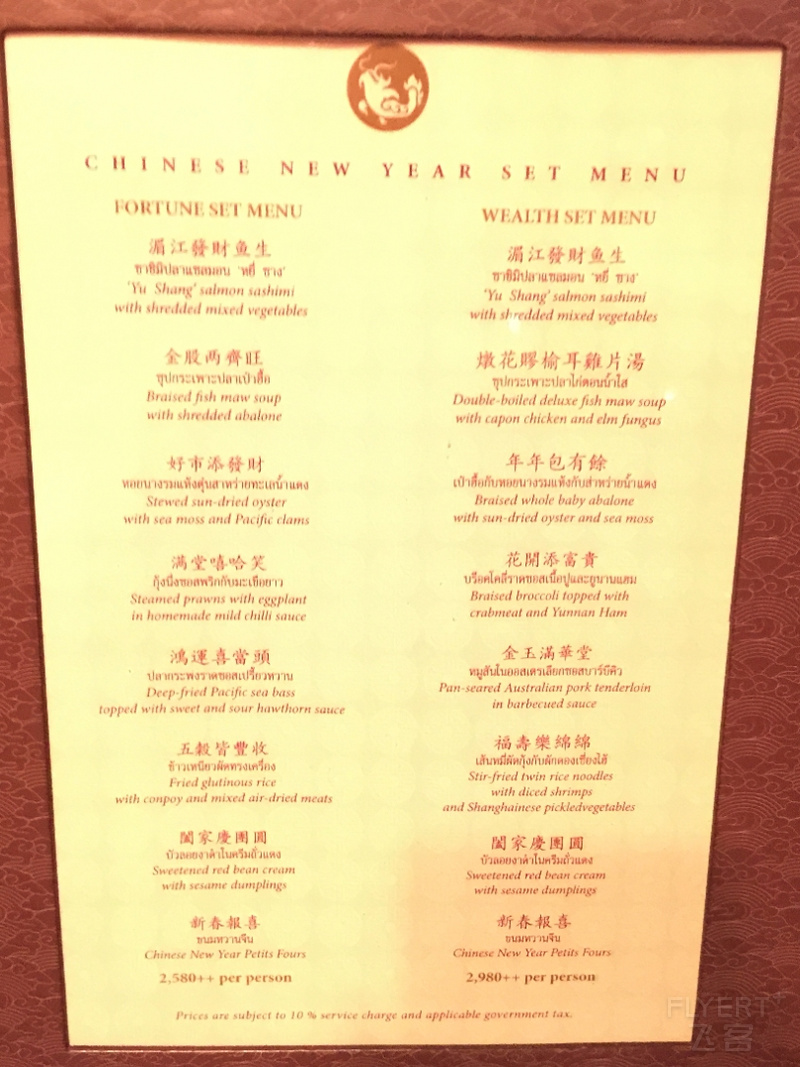 CHINESE NEW YEAR SET MENU
FORTUNE SET MENU
湄江發財鱼生
ซาซิมิปลาแซลมอน 'หยี่ ซาง'
'Yu Shang' salmon sashimi
with shredded mixed vegetables
金股两齊旺
ซุปกระเพาะปลาเป๋าฮื้อ
Braised fish maw soup
with shredded abalone
好市添發財
หอยนางรมแห้งตุ๋นสาหร่ายทะเลน้ำแดง
Stewed sun-dried oyster
with sea moss and Pacific clams
满堂嘻哈笑
กุ้งนึ่งซอสพริกกับมะเขือยาว
Steamed prawns with eggplant
in homemade mild chilli sauce
鴻運喜當頭
ปลากระพงราดซอสเปรี้ยวหวาน
Deep-fried Pacific sea bass
topped with sweet and sour hawthorn sauce
五穀皆豐收
ข้าวเหนียวผัดทรงเครื่อง
Fried glutinous rice
with conpoy and mixed air-dried meats
闔家慶團圓
บัวลอยงาดำในครีมถั่วแดง
Sweetened red bean cream
with sesame dumplings
新春報喜
ขนมหวานจีน
Chinese New Year Petits Fours
2,580++ per person
WEALTH SET MENU
湄江發財鱼生
ซาซิมิปลาแซลมอน 'หยี่ ซาง'
'Yu Shang' salmon sashimi
with shredded mixed vegetables
燉花膠榆耳雞片湯
ซุปกระเพาะปลาไก่ตอนน้ำใส
Double-boiled deluxe fish maw soup
with capon chicken and elm fungus
年年包有餘
เป๋าฮื้อกับหอยนางรมแห้งกับสาหร่ายน้ำแดง
Braised whole baby abalone
with sun-dried oyster and sea moss
花開添富貴
บร็อคโคลี่ราดซอสเนื้อปูและยูนานแฮม
Braised broccoli topped with
crabmeat and Yunnan Ham
金玉滿華堂
หมูสันในออสเตรเลียกซอสบาร์บีคิว
Pan-seared Australian pork tenderloin
in barbecued sauce
福壽樂綿綿
เส้นหมี่ผัดกุ้งกับผักดองเซี่ยงไฮ้
Stir-fried twin rice noodles
with diced shrimps
and Shanghainese pickledvegetables
闔家慶團圓
บัวลอยงาดำในครีมถั่วแดง
Sweetened red bean cream
with sesame dumplings
新春報喜
ขนมหวานจีน
Chinese New Year Petits Fours
2,980++ per person
Prices are subject to 10 % service charge and applicable government tax.
FLYERT
飞客